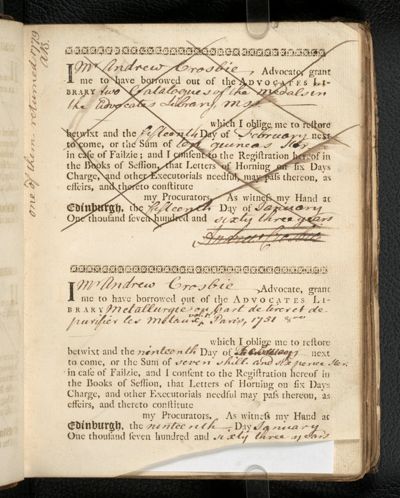 one of them returned 1779
A.B.
I Mr Andrew Crosbie, Advocate, grant
me to have borrowed out of the ADVOCATES LI-
BRARY two Catalogues of the medals in
the advocates Library, mss.
which I oblige me to restore
betwixt and the fifteenth Day of February next
to come, or the Sum of ten guineas Ster.
in case of Failzie; and I consent to the Registration hereof in
the Books of Session, that Letters of Horning on six Days
Charge, and other Executorials needful, may pass thereon, as
effeirs, and thereto constitute
my Procurators. As witness my Hand at
Edinburgh, the fifteenth Day of January
One thousand seven hundred and sixty three years
Andrew Crosbie
I Mr Andrew Crosbie, Advocate, grant
me to have borrowed out of the ADVOCATES LI-
BRARY Metallurgie ou l'art de tirer et de
purifier les metaux Paris, 1751
which I oblige me to restore
betwixt and the nineteenth Day of next
to come, or the Sum of seven shill. and sixpence Ster.
in case of Failzie, and I consent to the Registration hereof in
the Books of Session, that Letters of Horning on six Days
Charge, and other Executorials needful may pass thereon, as
effeirs, and thereto constitute
my Procurators. As witness my Hand at
Edinburgh, the nineteenth Day January
One thousand seven hundred and sixty three years